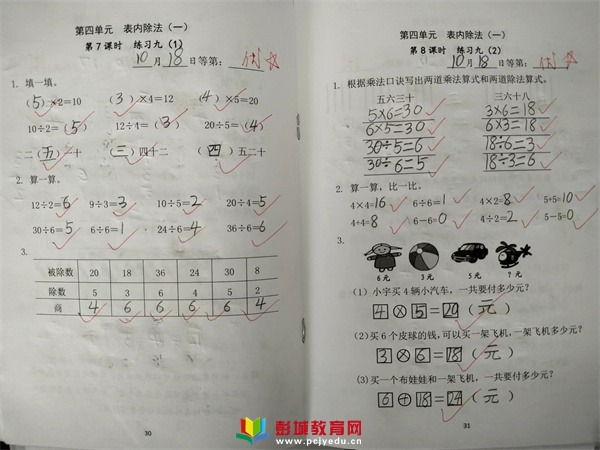 第四单元 表内除法(一)
第7课时 练习九(1)
10月18日等第:优
1. 填一填。
(5)×2=10 (3)×4=12 (4)×5=20
10÷2=(5) 12÷4=(3) 20÷5=(4)
二(五)一十 (三)四十二 (四)五二十
2. 算一算。
12÷2=6 9÷3=3 10÷5=2 20÷4=5
30÷6=5 6÷6=1 24÷6=4 36÷6=6
3.
被除数 20 18 36 24 30 8
除数 5 3 6 4 5 2
商 4 6 6 6 6 4
30
第四单元 表内除法(一)
第8课时 练习九(2)
10月18日等第:优
1. 根据乘法口诀写出两道乘法算式和两道除法算式。
五六三十 三六十八
5×6=30 3×6=18
6×5=30 6×3=18
30÷5=6 18÷6=3
30÷6=5 18÷3=6
2. 算一算,比一比。
4×4=16 6÷6=1 4×2=8 5+5=10
4+4=8 6−6=0 4÷2=2 5−5=0
3.
6元 3元 5元 ?元
(1)小宇买4辆小汽车,一共要付多少元?
4×5=20(元)
(2)买6个皮球的钱,可以买一架飞机,一架飞机多少元?
3×6=18(元)
(3)买一个布娃娃和一架飞机,一共要付多少元?
6+18=24(元)
31
彭城教育网
www.pcjyedu.cn